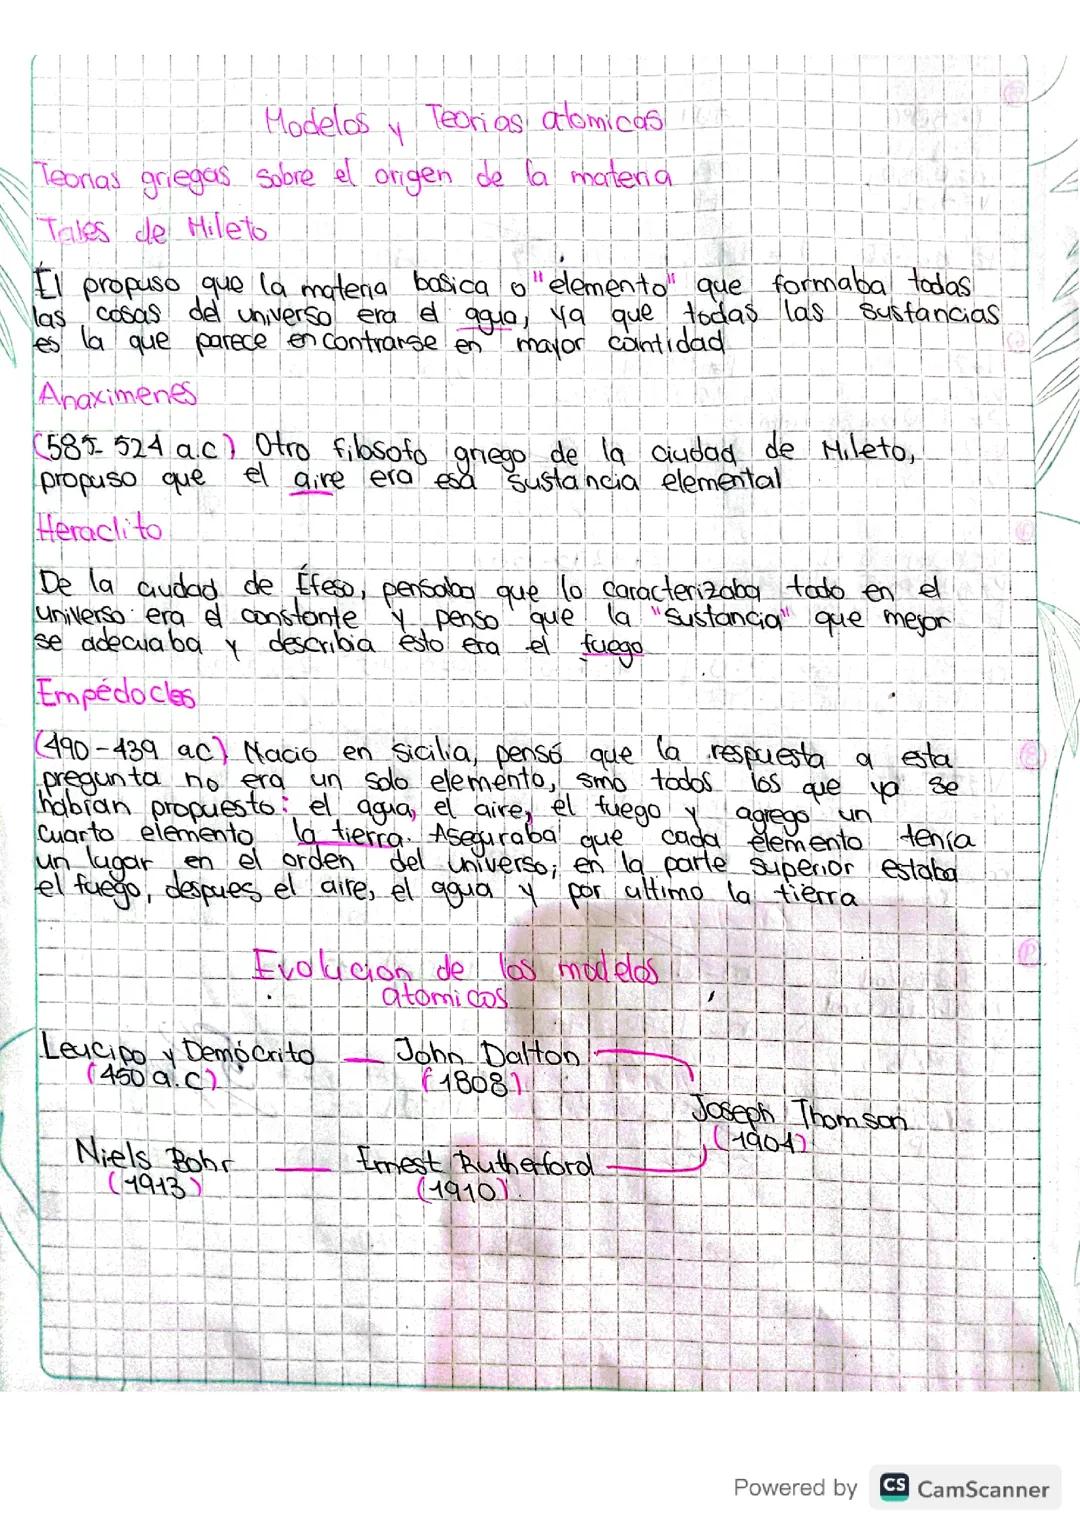 Modelos y Teorias atomicas
Teorias griegas sobre el origen de la materia
Tales de Mileto
Él propuso que la materia basica o "elemento" que formaba todas
las cosas del universo era el agua, ya que todas las sustancias
es la que parece encontrarse en mayor cantidad
Anaximenes
(585-524 a.c) Otro filosofo griego de la ciudad de Mileto,
propuso que el aire era esa sustancia elemental
Heraclito
De la ciudad de Éfeso, pensaba que lo caracterizaba todo en el
universo era el constante y penso que la "sustancia" que mejor
se adecuaba y describia esto era el fuego
Empédocles
(490-439 ac) Nacio en sicilia, pensó que la respuesta a esta
pregunta no era un solo elemento, sino todos los que ya se
habian propuesto: el agua, el aire, el fuego y agrego un
cuarto elemento la tierra. Aseguraba que cada elemento tenía
un lugar en el orden del universo; en la parte superior estaba
el fuego, despues el aire, el agua y por ultimo la tierra
Evolucion de los modelos
atomicos
Leucipo y Demócrito — John Dalton
(450 a.c) (1808)
Joseph Thomson
(1904)
Niels Bohr — Ernest Rutherford
(1913) (1910)
Powered by CS CamScanner